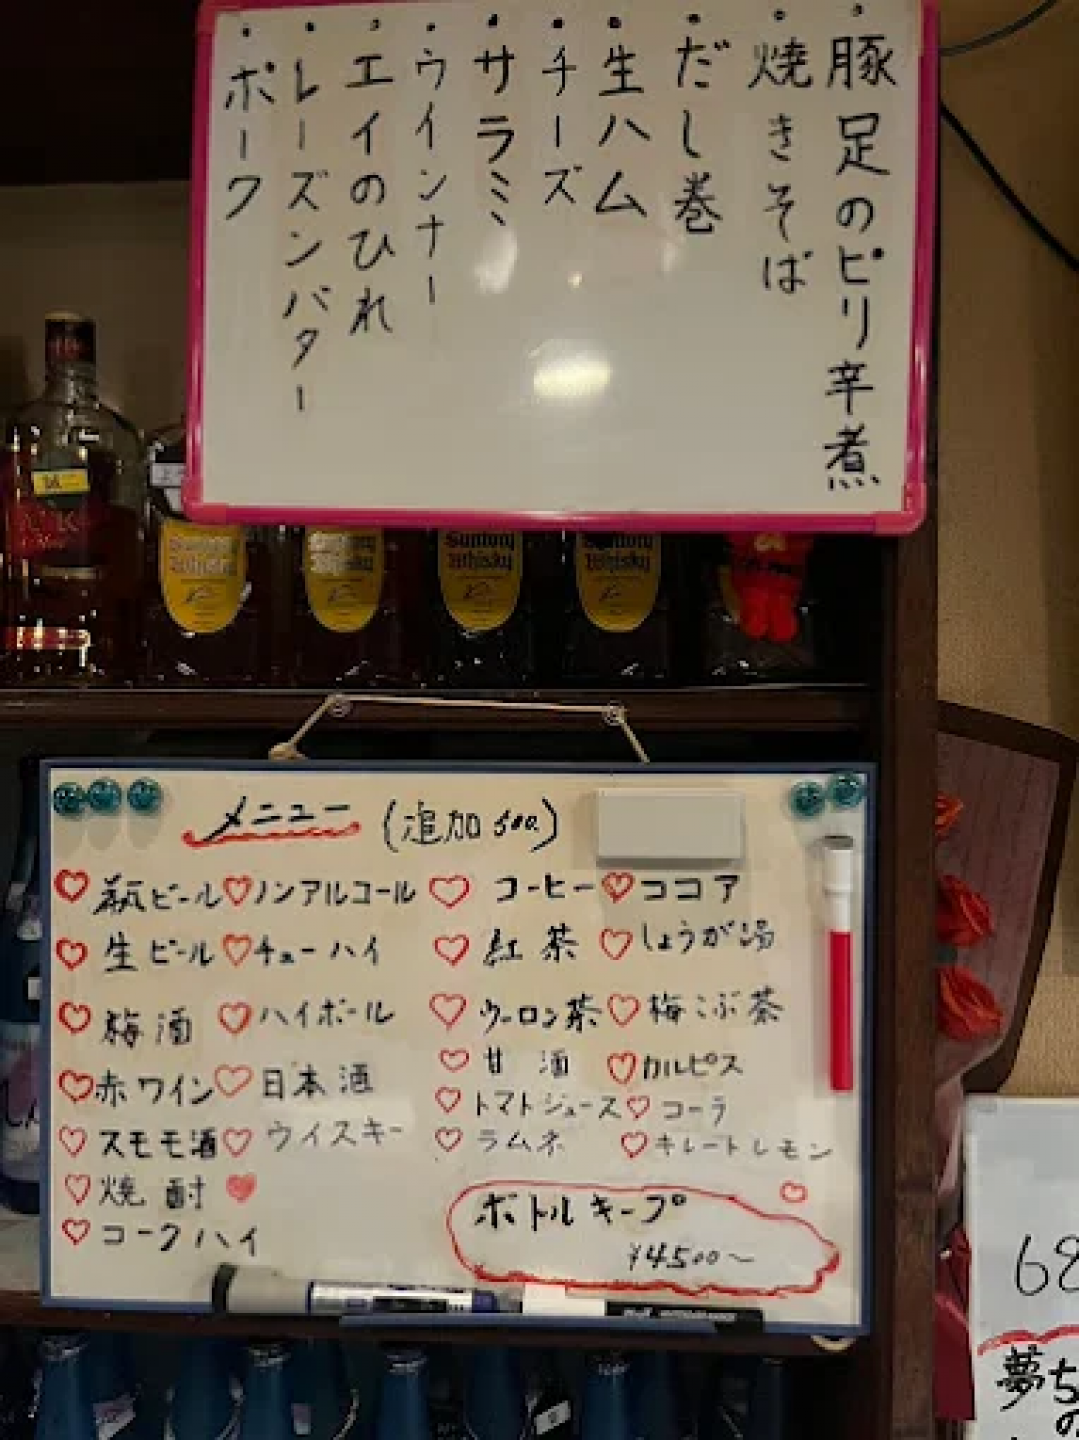 豚足のピリ辛煮
焼きそば
だし巻
生ハム
チーズ
サラミ
ウインナー
エイのひれ
レーズンバター
ポーク
Suntory
Whisky
Suntory
Whisky
Suntory
Whisky
Suntory
Whisky
メニュー (追加500.)
瓶ビール
生ビール
梅酒
赤ワイン
スモモ酒
焼酎
コークハイ
ノンアルコール
チューハイ
ハイボール
日本酒
ウイスキー
コーヒー
紅茶
ウーロン茶
甘酒
トマトジュース
ラムネ
ココア
しょうが湯
梅こぶ茶
カルピス
コーラ
キレートレモン
ボトルキープ
¥4500～
68
夢ち
の